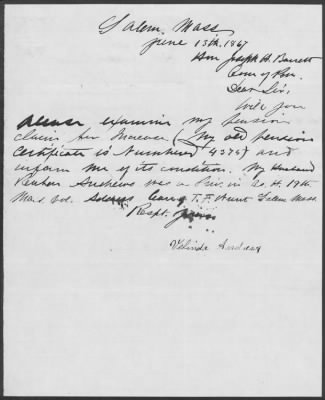 Salem, Mass
June 13th, 1867
Hon Joseph H. Barrett
Com of Pen.
Dear Sir.
Will you
please examine my pension
claim for Increase (My old pension
Certificate is Numbered 43767) and
inform me of its condition. My Husband
Reuben Andrews was a Priv, in Co. H. 19th
Mass. Vol. Address Care of T. F. Hunt Salem Mass.
Respt. yours
Velinda Andrews